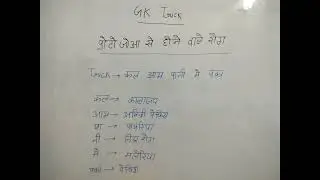 GK Trick
प्रोटोजोआ से होने वाले रोग
Trick → कल आम पानी मे पका
कल → कालाजार
आम → अमिबी पेचिस
पा → पायरिया
नी → निद्रा रोग
मे → मलेरिया
पका → पेचिश